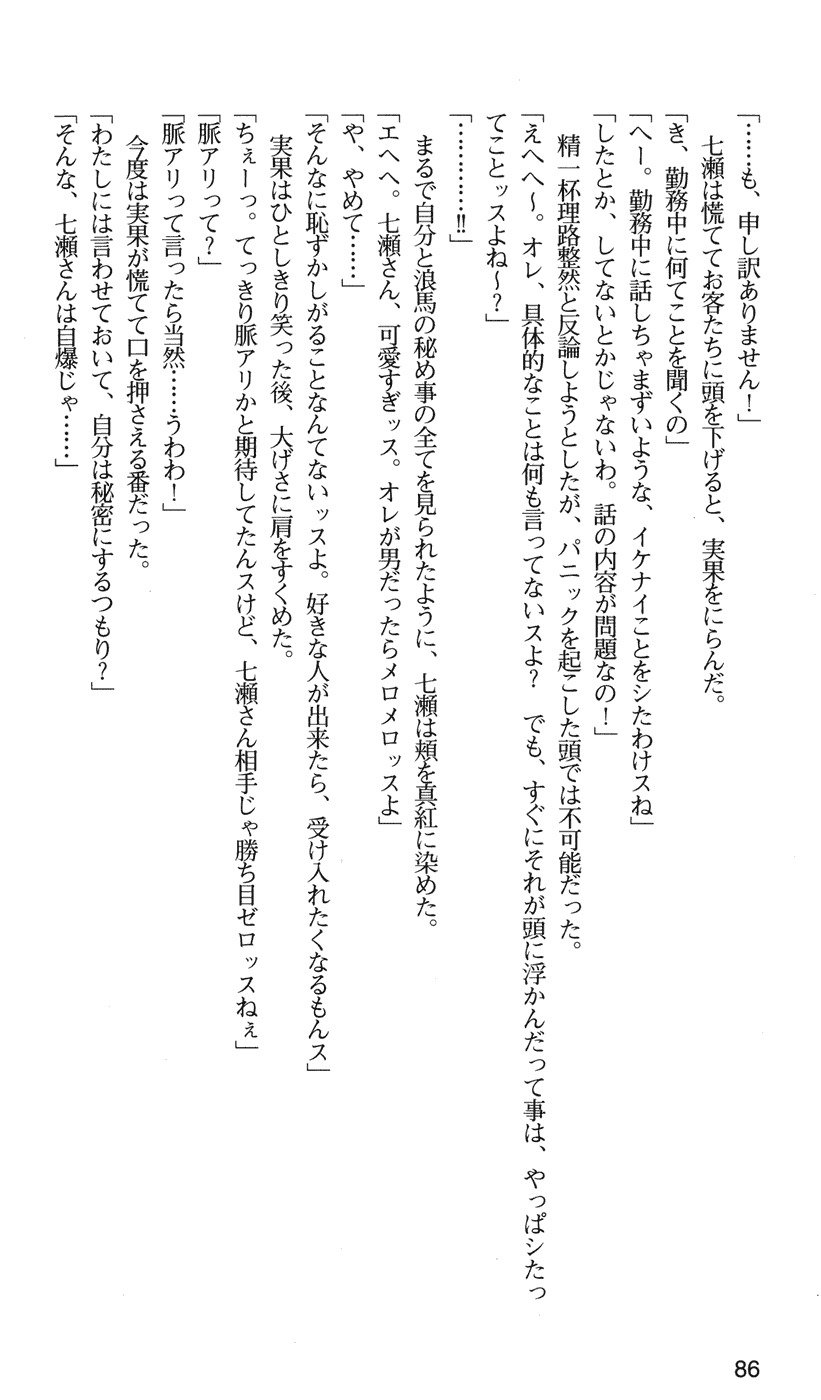 「……も、申し訳ありません！」
　七瀬は慌ててお客たちに頭を下げると、実果をにらんだ。
「き、勤務中に何てことを聞くの」
「へー。勤務中に話しちゃまずいような、イケナイことをシたわけスね」
「したとか、してないとかじゃないわ。話の内容が問題なの！」
　精一杯理路整然と反論しようとしたが、パニックを起こした頭では不可能だった。
「えへへ〜。オレ、具体的なことは何も言ってないスよ？　でも、すぐにそれが頭に浮かんだって事は、やっぱシたっ
てことッスよね〜？」
「…………!!」
　まるで自分と浪馬の秘め事の全てを見られたように、七瀬は頬を真紅に染めた。
「エヘヘ。七瀬さん、可愛すぎッス。オレが男だったらメロメロッスよ」
「や、やめて……」
「そんなに恥ずかしがることなんてないッスよ。好きな人が出来たら、受け入れたくなるもんス」
　実果はひとしきり笑った後、大げさに肩をすくめた。
「ちぇーっ。てっきり脈アリかと期待してたんスけど、七瀬さん相手じゃ勝ち目ゼロッスねぇ」
「脈アリって？」
「脈アリって言ったら当然……うわわ！」
　今度は実果が慌てて口を押さえる番だった。
「わたしには言わせておいて、自分は秘密にするつもり？」
「そんな、七瀬さんは自爆じゃ……」
86